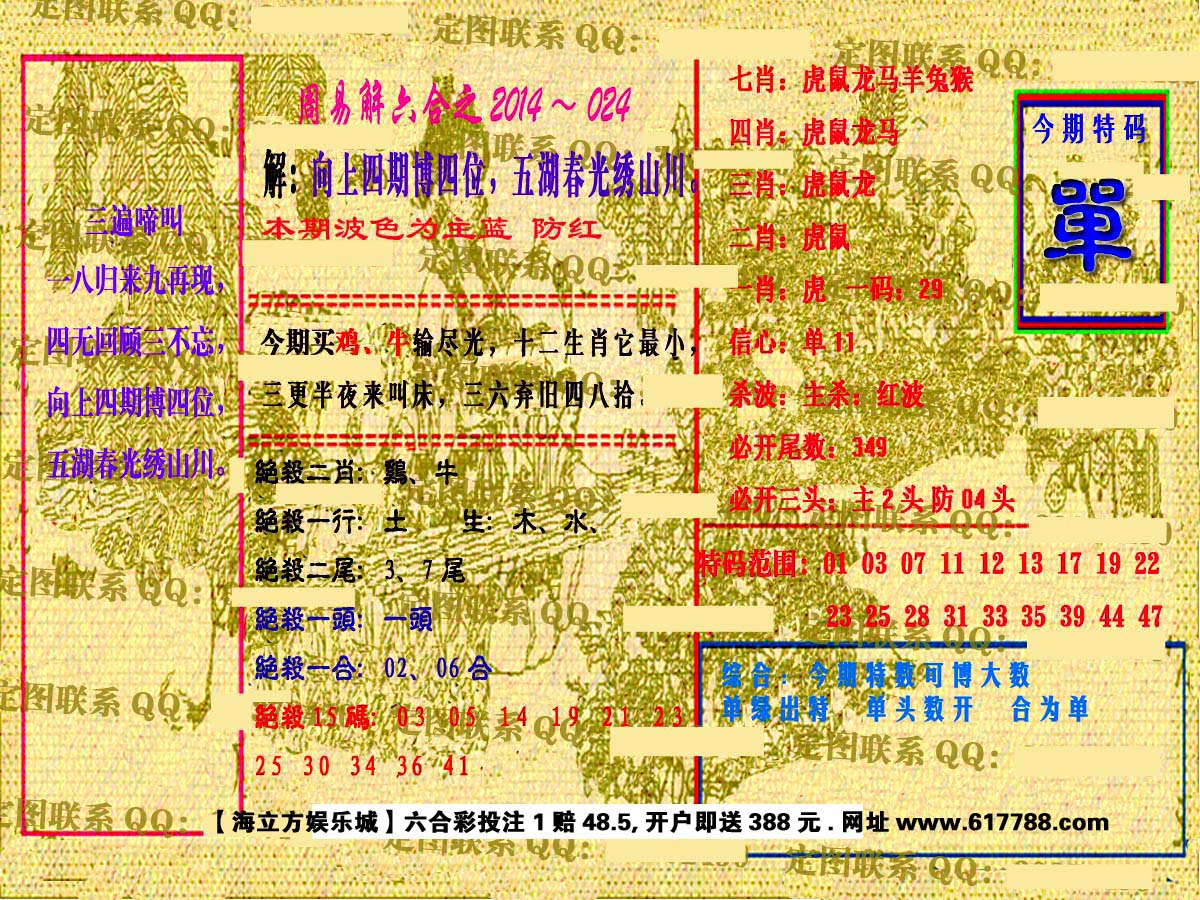 周易解六合之2014～024
三遍啼叫
一八归来九再现，
四无回顾三不忘，
向上四期博四位，
五湖春光绣山川。
解：向上四期博四位，五湖春光绣山川。
本期波色为主蓝 防红
今期买鸡、牛输尽光，十二生肖它最小，
三更半夜来叫床，三六弃旧四八拾.
絕殺二肖：鷄、牛
絕殺一行：土 生：木、水、
絕殺二尾：3、7尾
絕殺一頭：一頭
絕殺一合：02、06合
絕殺15碼：03 05 14 19 21 23
25 30 34 36 41
七肖：虎鼠龙马羊兔猴
四肖：虎鼠龙马
三肖：虎鼠龙
二肖：虎鼠
一肖：虎 一码：29
信心：单11
杀波：主杀：红波
必开尾数：349
必开三头：主2头防04头
今期特码
單
特码范围：01 03 07 11 12 13 17 19 22
23 25 28 31 33 35 39 44 47
综合：今期特数可博大数
单绿出特 单头数开 合为单
【海立方娱乐城】六合彩投注1赔48.5,开户即送388元.网址www.617788.com
定图联系QQ：
定图联系QQ：
定图联系QQ：
定图联系QQ：
定图联系QQ：
定图联系QQ：
定图联系QQ：
定图联系QQ：
定图联系QQ：
定图联系QQ：